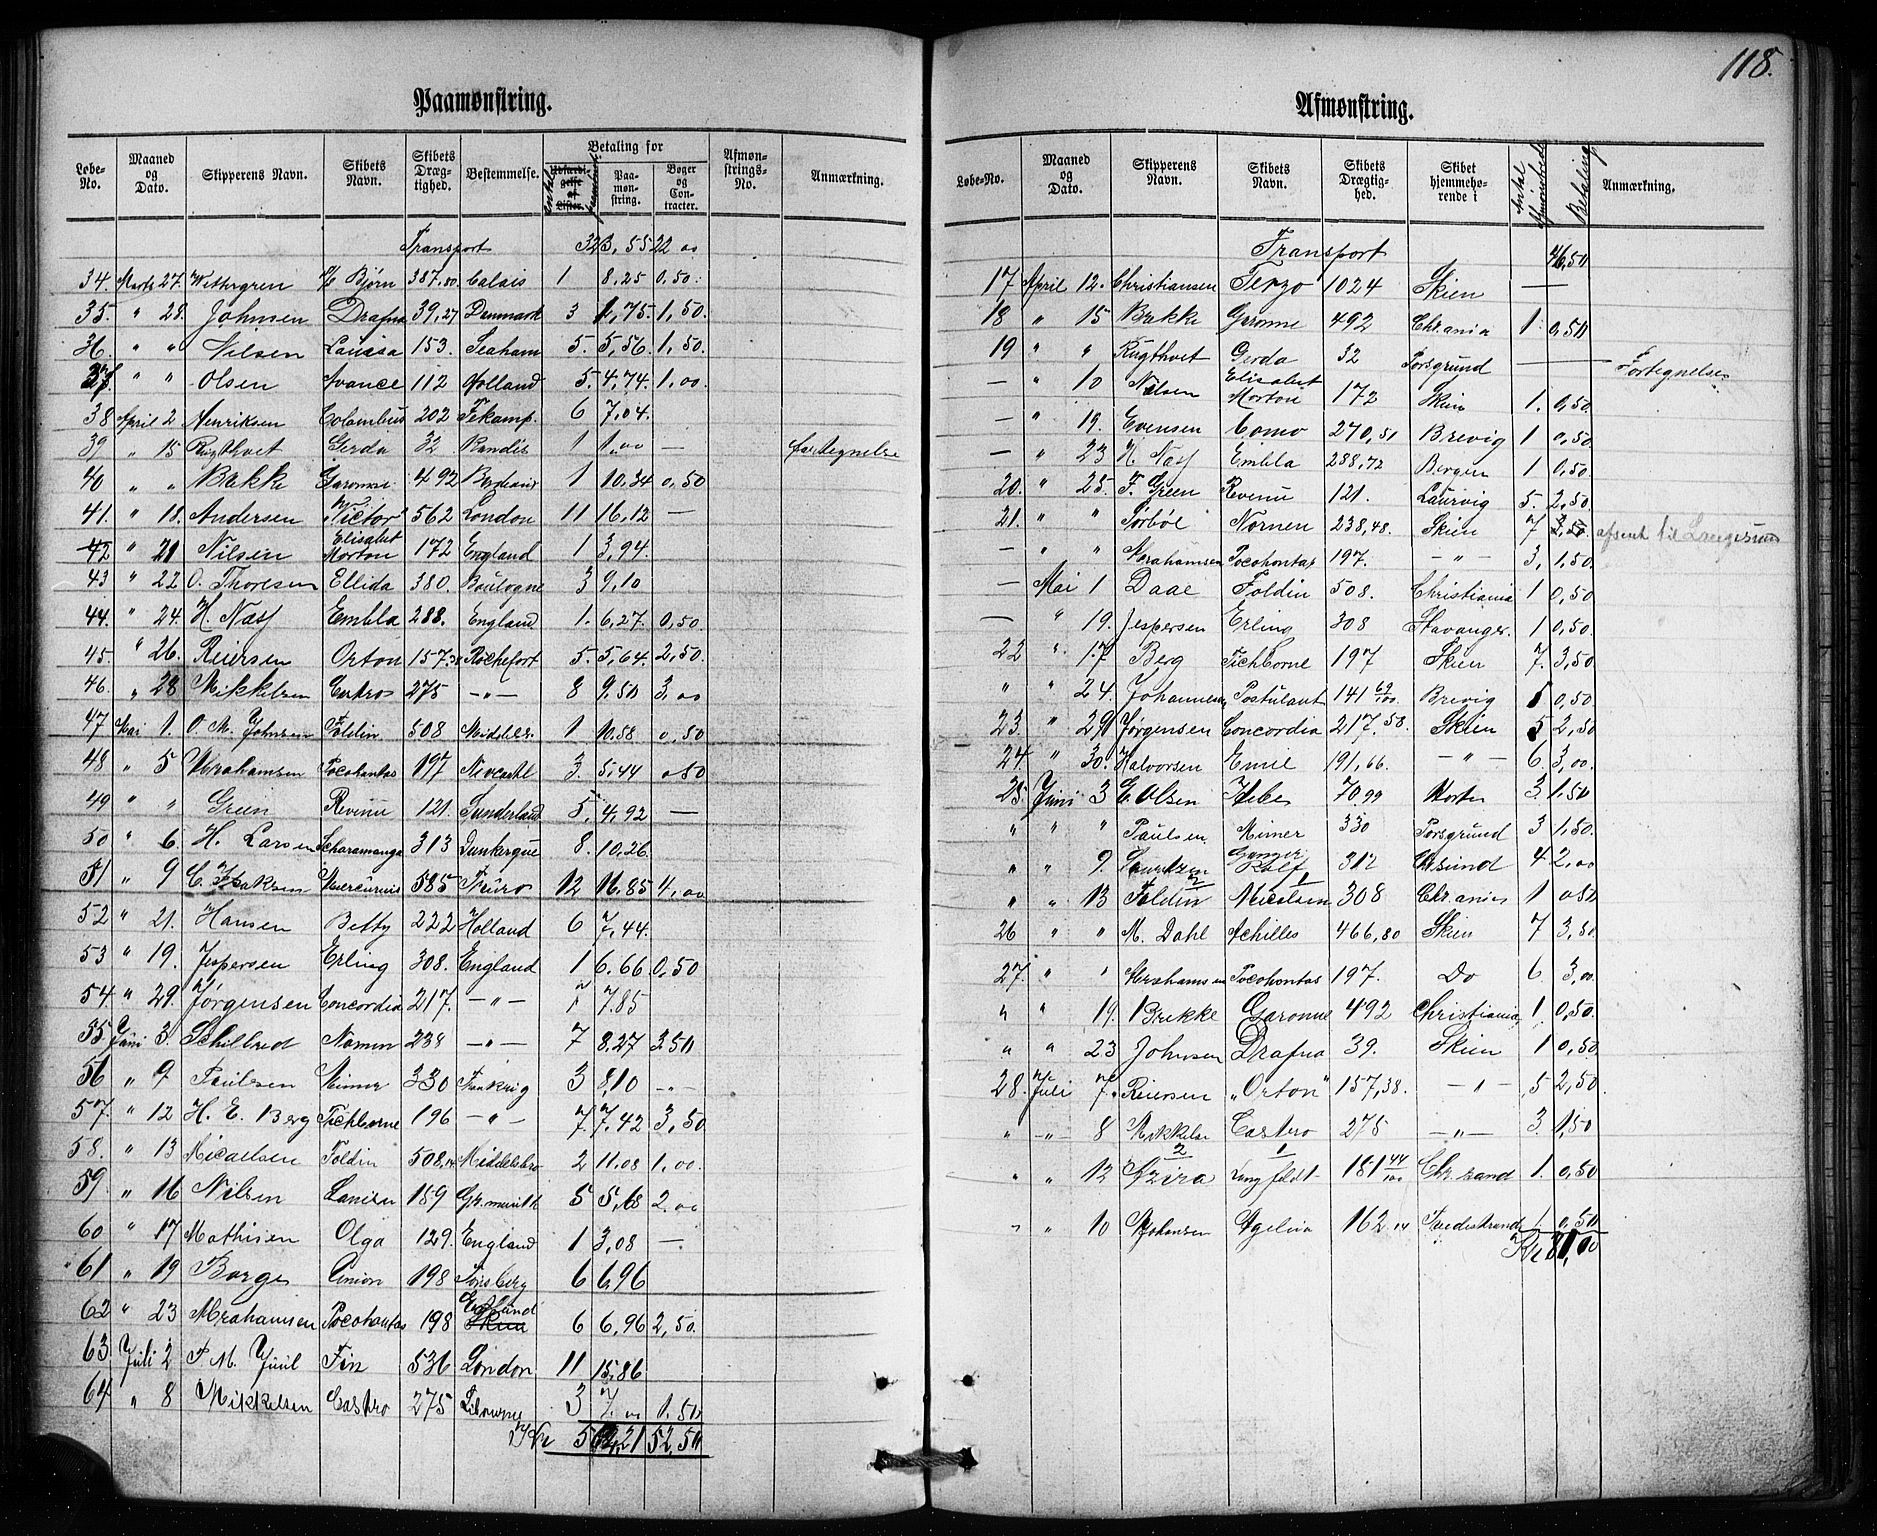 118.
Paamønstring.
Løbe-No. Maaned og Dato. Skipperens Navn. Skibets Navn. Skibets Dræg-tighed. Bestemmelse. Betaling for Paa-møn-string. Bøger og Con-tracter. Afmøn-strings-No. Anmærkning.
Transport 323,55 22 00
34. Marts 27. Wethergren D/S Bjørn 387,80 Calais 1 8,25 0,50.
35. " 29. Johnsen Drafna 39,27 Danmark 3 1,75. 1,50.
36. " " Nilsen Lauisa 153. Seaham 5. 5,56. 1,50.
37. " " Olsen Avance 112 Holland 5. 4,74. 1,00.
38 April 2 Henriksen Colombus 202 Fekamp. 6 7,04.
39 " 15 Rugthvet Gerda 32 Randis 1 1,00 — fortegnelse
40 " " Bakke Garonne 492 Bordeaux 1 10.34 0,50
41. " 11. Andersen "Victor" 562 London 11 16,12 —
42 " 21 Nilsen Elisabet Morton 172 England 1 3,94.
43 " 22 O. Thoresen Ellida 380. Boulogne 3 9,10
44. " 24. H. Næss Embla 288. England 1. 6,27. 0,50.
45. " 26. Reiersen Orton 157.38 Rochefort 5. 5,64. 2,50.
46. " 28 Mikkelsen Castro 275 —"— 8 9.50 3,00
47 Mai 1. O. M. Johnsen Foldin 508 Middlesb. 1 10.58 0,50
48 " 5 Abrahamsen Pocohontas 197 Newcastl 3. 5,44 0 50
49 " " Green Revenu 121. Sunderland 5. 4,92 —
50 " 6. H. Larsen Scharamanga 313 Dunkerque 8. 10,26
51 " 9 C. Isaksen Mercurius 585 Truro 12 16,85 4,00
52 " 21. Hansen Betty 222 Holland 6 7,44.
53 " 19. Jespersen Erling 308. England 1 6.66 0,50
54. " 29. Jørgensen Concordia 217. —"— 7 7.85
55 Juni 3. Schilbred Nornen 238 —"— 7 8,27 3.50
56 " 9 Paulsen Mimer 330 Frankrig 3 8,10 —
57. " 12 H. E. Berg Tichborne 196 —"— 7. 7. 42 3,50
58. " 13 Micaelsen Foldin 508,14 Middelsbro 2 11.08 1,00.
59. " 16 Nilsen Lauisa 159 5 5,68 2,00
60 " 17 Mathisen Olga 129. England 1 3,08 —
61 " 19 Borge Union 198 Tønsberg 6 6,96
62 " 23 Abrahamsen Pocohontas 198 England Skien 6 6,96 2,50.
63 Juli 2 F. M. Juul Fin 536 London 11 15,86
64 " 8 Mikkelsen Castro 275 Libourne 3 7,00 1.50
Kr 504,21 52,50
Afmønstring.
Løbe-No. Maaned og Dato. Skipperens Navn. Skibets Navn. Skibets Drægtig-hed. Skibet hjemmehø-rende i Antal Betaling Anmærkning.
Transport 46,50
17 April 12. Christiansen Terzo 1024 Skien —
18 " 15 Bakke Garonne 492 Chr.ania 1. 0,50
19 " " Rugthvet Gerda 32 Porsgrund — — Fortegnelse
— " 10 Nilsen Elisabet Morton 172 Skien 1. 0,50.
— " 19. Evensen Como 270,51 Brevig 1 0,50.
— " 23 H. Næss Embla 288,72 Bergen 1 0,50.
20. " 25. F. Green Revenu 121. Laurvig 5. 2,50.
21. " " Sørbøe Nornen 238,48. Skien 7 3,50. afsent til Langesund
— " " Abrahamsen Pocohontas 197. —"— 3, 1,50.
— Mai 1 Daae Foldin 508. Christiania 1 0,50
— " 19. Jespersen Erling 308 Stavanger. 1 0,50.
22 " 17 Berg Tichborne 197 Skien 7. 3,50
" " 24. Johannesen Postulant 141 69/100 Brevig 1 0,50
23. " 29 Jørgensen Concordia 217.58. Skien 5 2,50
24. " 30. Halvorsen Emil 191,66. —"— 6. 3,00.
25. Juni 3 E. Olsen Hebe 70 99 Horten 3. 1.50
" " " Paulsen. Mimer 330 Porsgrund 3 1,50.
" " 9. Lauritzen Ganger Rolf 312 Chr.sund 4 2,00
" " 13 Foldin 2 Micalsen 1 308 Chr.ania 1 0 50
26 " " M. Dahl Achilles 466,80 Skien 7 3,50
27. " " Abrahamsen Pocohontas 197. Do 6. 3,00.
" " 19. Brekke Garonne 492 Christiania 1. 0,50.
" " 23 Johnsen Drafna 39. Skien 1 0,50.
28. Juli 7. Reiersen "Orton" 157,38. —"— 5 2,50.
" —"— 8 Mikkelse Castro 275 —"— 3. 1,50
" " 12 Azira 2 Langfeldt 1 181 44/100 Chr.sand 1. 0,50
" " 10 Johansen Agelina 162.14 1. 0,50
Kr 81,00